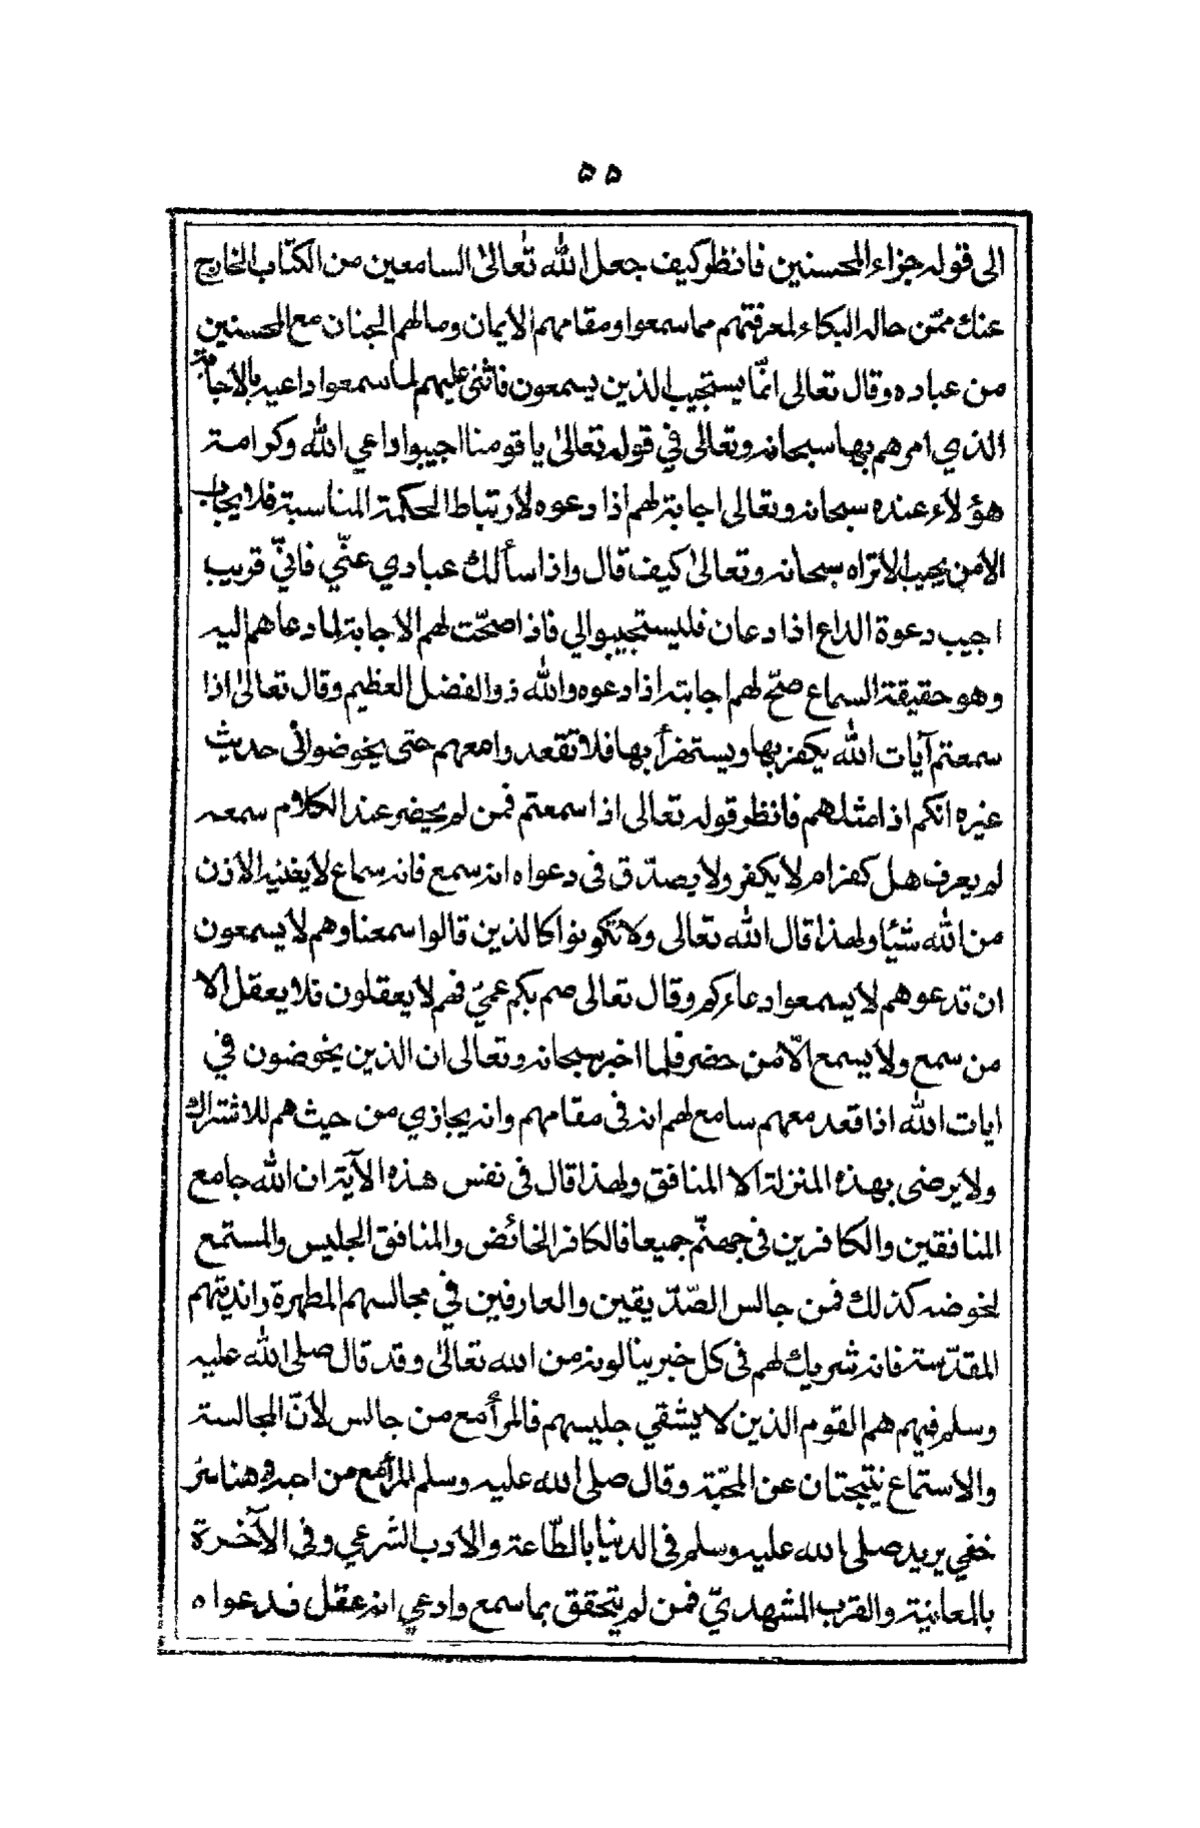 ٥٥
الى قوله جزاء المحسنين فانظر كيف جعل الله تعالى السامعين من الكتاب الخارج
عنك ممّن حاله البكاء لمعرفتهم مما سمعوا ومقامهم الايمان ومالهم الجنان مع المحسنين
من عباده وقال تعالى انمّا يستجيب الذين يسمعون فاثنى عليهم لما سمعوا داعيه بالاجابة
الذي امرهم بها سبحانه وتعالى في قوله تعالى يا قومنا اجيبوا داعي الله وكرامة
هؤلاء عنده سبحانه وتعالى اجابته لهم اذا دعوه لارتباط الحكمة المناسبة فلا يجاب
الامن يجيب الاتراه سبحانه وتعالى كيف قال واذا سألك عبادي عنّي فانيّ قريب
اجيب دعوة الداع اذا دعان فليستجيبوا لي فاذا صحّت لهم الاجابة لما دعاهم اليه
وهو حقيقة السماع صحّ لهم اجابته اذا دعوه والله ذو الفضل العظيم وقال تعالى اذا
سمعتم آيات الله يكفر بها ويستهزأ بها فلا تقعدوا معهم حتى يخوضوا فى حديث
غيره انكم اذا مثلهم فانظر قوله تعالى اذا سمعتم فمن لم يحضر عند الكلام سمعه
لم يعرف هل كفر ام لا يكفر ولا يصدّق فى دعواه انه سمع فانه سماع لا يغنيه الاذن
من الله شيئا ولهذا قال الله تعالى ولا تكونوا كالذين قالوا سمعنا وهم لا يسمعون
ان تدعوهم لا يسمعوا دعاءكم وقال تعالى صم بكم عميّ فهم لا يعقلون فلا يعقل الا
من سمع ولا يسمع الاّ من حضر فلما اخبر سبحانه وتعالى ان الذين يخوضون في
ايات الله اذا قعد معهم سامع لهم انه فى مقامهم وانه يجازي من حيث هم للاشتراك
ولا يرضى بهذه المنزلة الا المنافق ولهذا قال فى نفس هذه الآية ان الله جامع
المنافقين والكافرين فى جهنّم جميعا فالكافر الخائض والمنافق الجليس والمستمع
لخوضه كذلك فمن جالس الصّدّيقين والعارفين في مجالسهم المطهرة وانديتهم
المقدّسة فانه شريك لهم فى كل خير ينالونه من الله تعالى وقد قال صلى الله عليه
وسلم فيهم هم القوم الذين لا يشقي جليسهم فالمرأ مع من جالس لأنّ المجالسة
والاستماع نتيجتان عن المحبّة وقال صلى الله عليه وسلم المرأ مع من احبه وهنا سر
خفي يريد صلى الله عليه وسلم فى الدنيا بالطّاعة والأدب الشرعي وفى الآخرة
بالمعاينة والقرب المشهديّ فمن لم يتحقق بما سمع وادعي انه عقل فدعواه